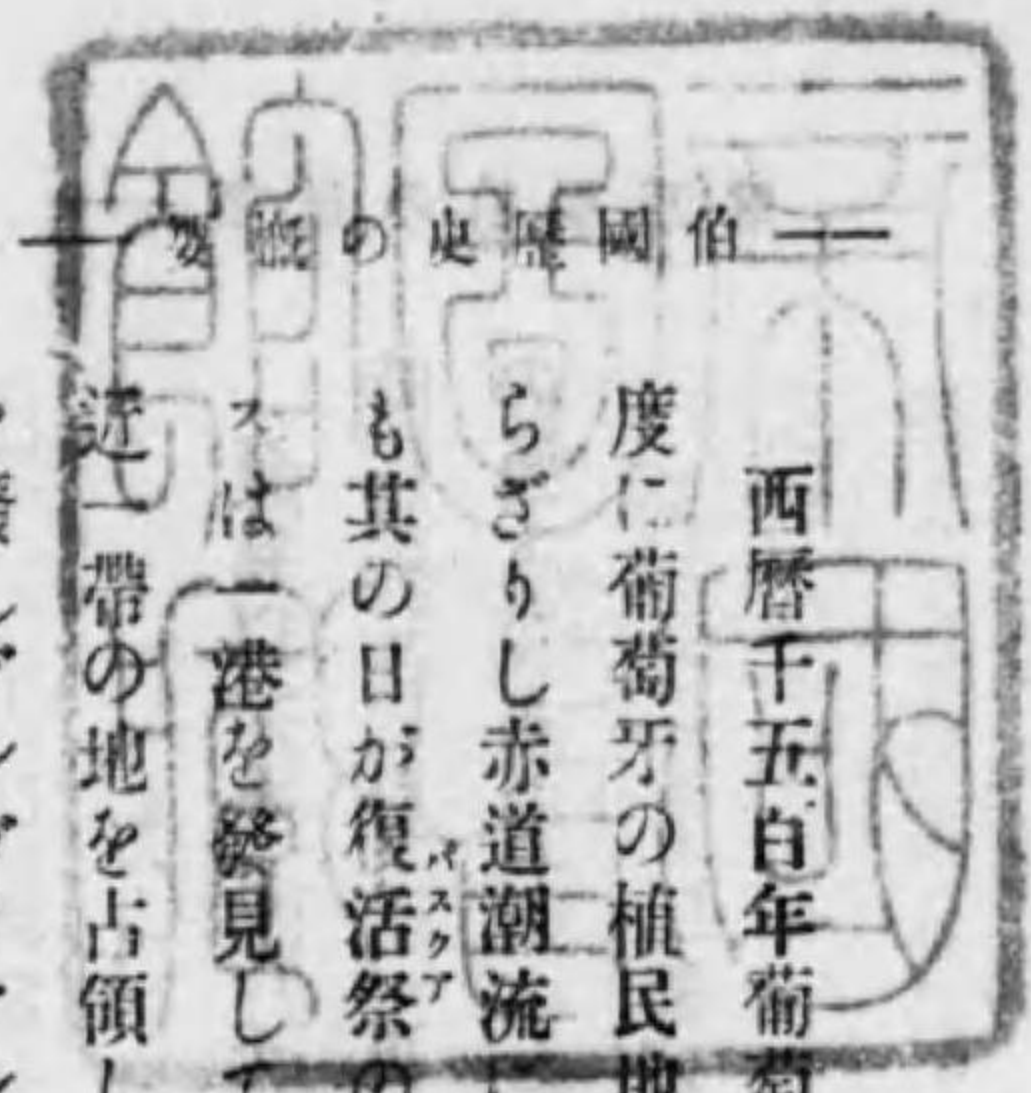 伯國歷史の概要
西曆千五百年葡萄
度に葡萄牙の植民地
らざりし赤道潮流に
も其の日が復活祭の
パスクア
スは一港を發見して
近一帶の地を占領し